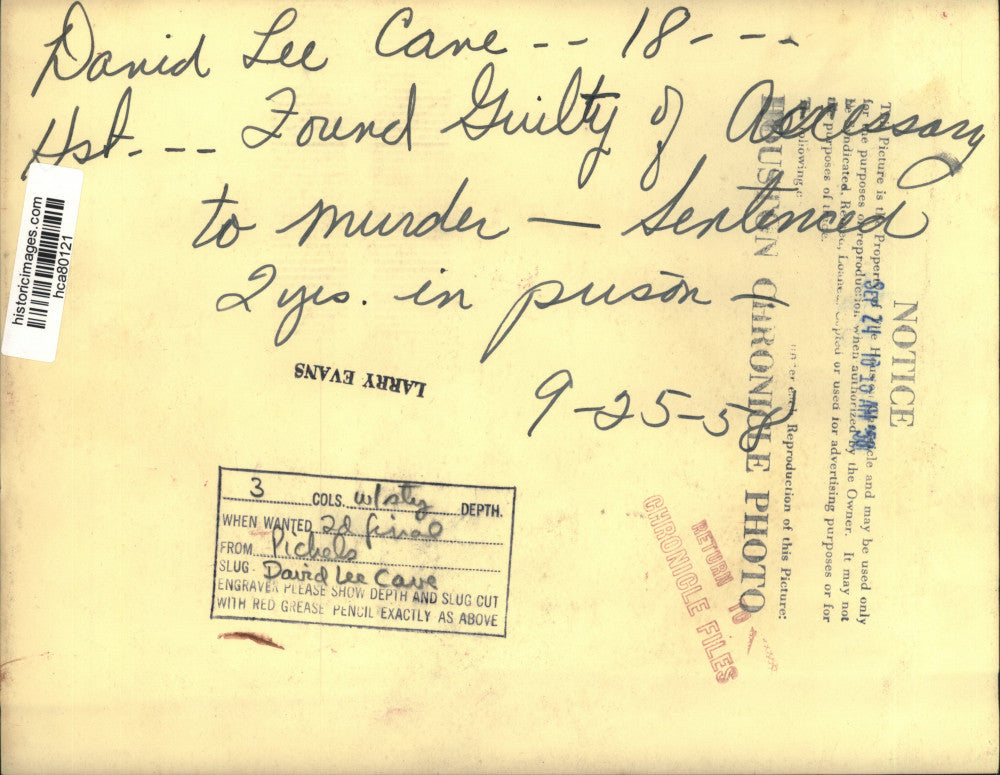 David Lee Cave -- 18---
Hst.--- Found Guilty of Accessary
to murder — Sentenced
2 yrs. in prison —
9-25-58
historicimages.com
hca80121
LARRY EVANS
3 COLS. w/sty DEPTH.
WHEN WANTED 2d final
FROM Pichels
SLUG - David Lee Cave
ENGRAVER PLEASE SHOW DEPTH AND SLUG CUT
WITH RED GREASE PENCIL EXACTLY AS ABOVE
RETURN TO
CHRONICLE FILES
NOTICE
SEP 24 10 18 AM '58
This Picture is the Property of The Houston Chronicle and may be used only
for the purposes of reproduction when authorized by the Owner. It may not
be Syndicated, Loaned, Copied or used for advertising purposes or for
purposes of
following
under each Reproduction of this Picture:
HOUSTON CHRONICLE PHOTO